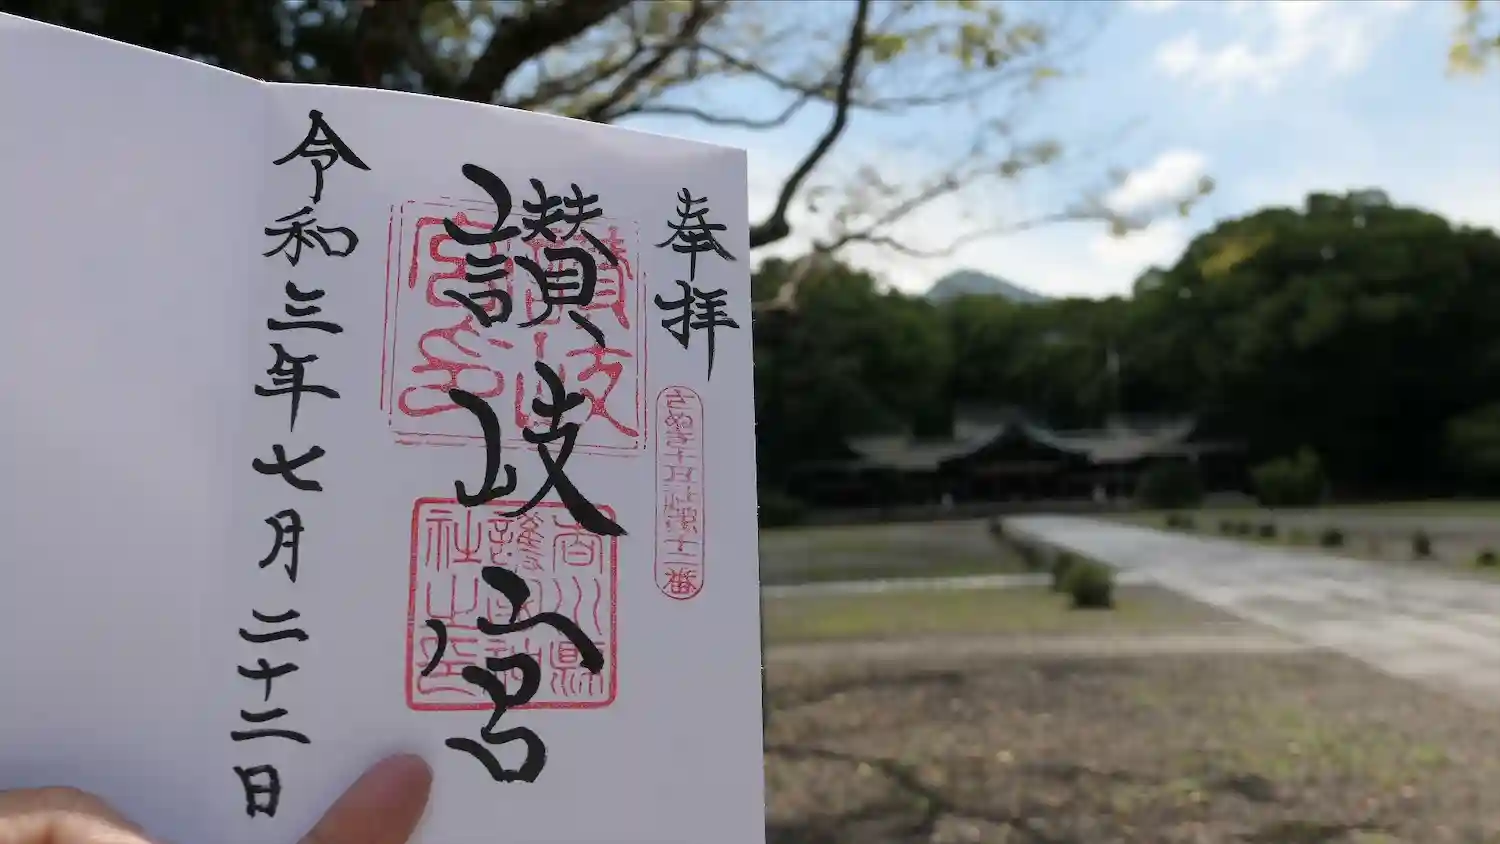 奉拝
さぬき十五社第十二番
讃岐宮
讃岐宮印
香川縣護國神社之印
令和三年七月二十二日